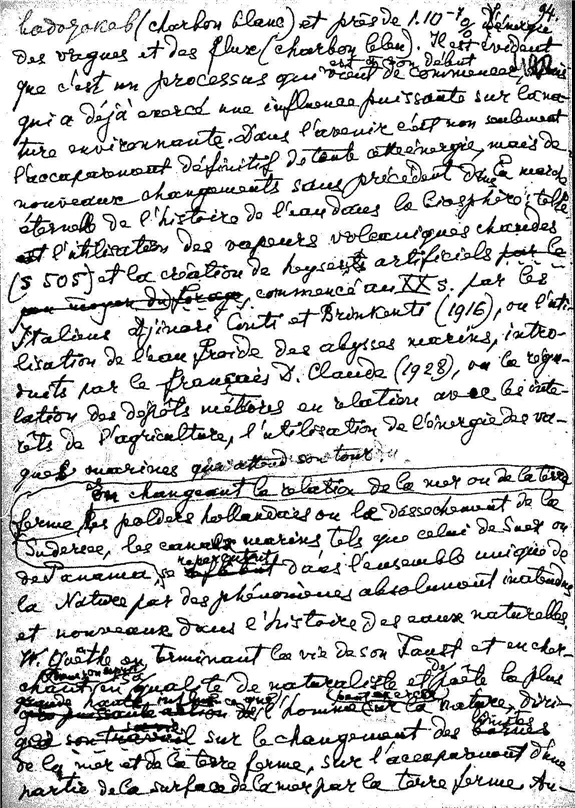 94.
(charbon blanc) et près de 1.10⁻⁴% d'énergie
des vagues et des flux (charbon bleu). Il est évident
que c'est un processus qui vient de commencer
est à son début
qui a déjà exercé une influence puissante sur la na-
ture environnante. Dans l'avenir c'est non seulement
l'accaparement définitif de toute cette énergie, mais de
nouveaux changements sans précédent dans la marche
éternelle de l'histoire de l'eau dans la biosphère; telle
est l'utilisation des vapeurs volcaniques chaudes
(§ 505) et la création de geysers artificiels par le
commencé au XX s. par les
Italiens Djinori Conti et Brinkenti (1916), ou l'uti-
lisation de l'eau froide des abysses marins, intro-
duits par le français D. Claude (1928), ou la régu-
lation des dépôts météores en relation avec les inté-
rêts de l'agriculture, l'utilisation de l'énergie des va-
gues marines qui attend son tour.
En changeant la relation de la mer ou de la terre
ferme, les polders hollandais ou la désséchement de la
Sudersee, les canaux marins tels que celui de Suez ou
de Panama, se répercutent dans l'ensemble unique de
la Nature par des phénomènes absolument inattendus
et nouveaux dans l'histoire des eaux naturelles.
W. Goethe en terminant la vie de son Faust et en cher-
chant en qualité de naturaliste et de poète la plus
haute de l'homme sur la nature, diri-
gea son travail sur le changement des limites
de la mer et de la terre ferme, sur l'accaparement d'une
partie de la surface de la mer par la terre ferme. Au-